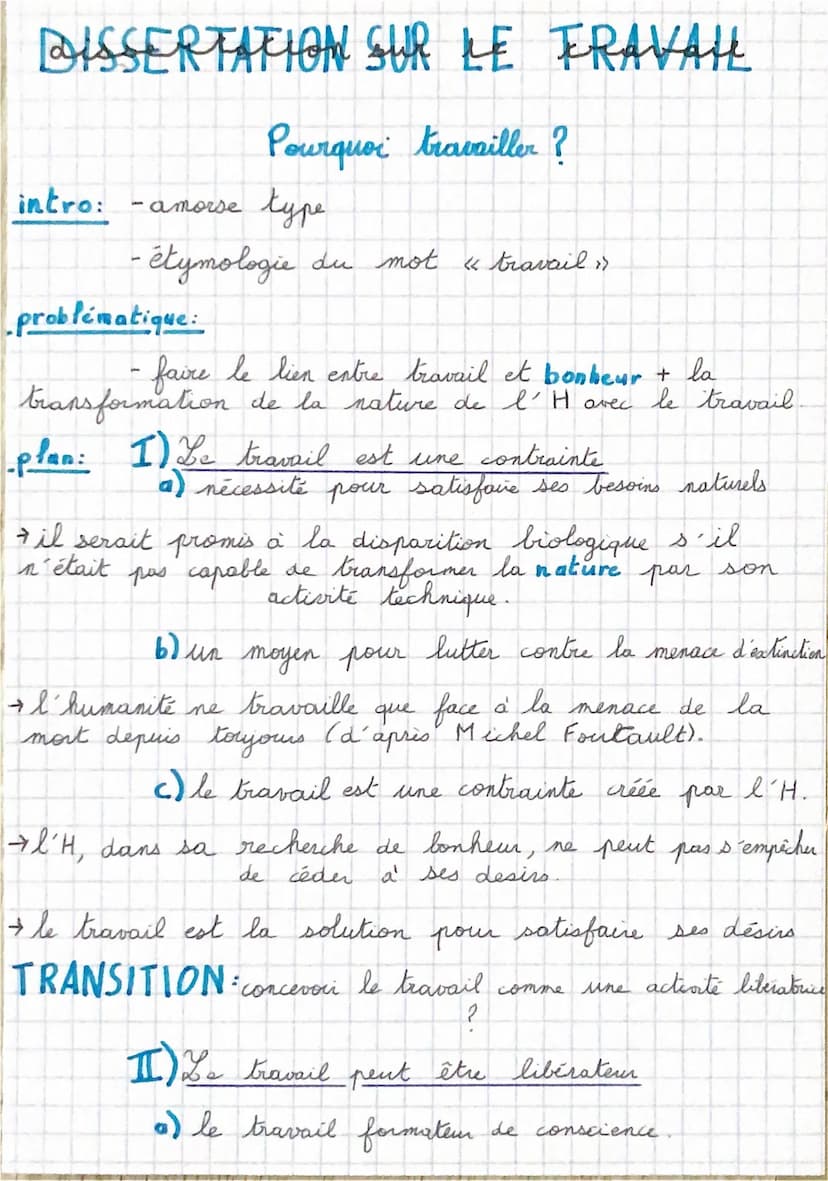 DISSERTATION SUR LE TRAVAIL
dissertation sur le travail
Pourquoi travailler ?
intro: - amorse type
- étymologie du mot « travail »
.problématique:
- faire le lien entre travail et bonheur + la
transformation de la nature de l'H avec le travail.
.plan: I) Le travail est une contrainte
a) nécessité pour satisfaire ses besoins naturels
→ il serait promis à la disparition biologique s'il
n'était pas capable de transformer la nature par son
activité technique.
b) un moyen pour lutter contre la menace d'extinction
→ l'humanité ne travaille que face à la menace de la
mort depuis toujours (d'après Michel Foultault).
c) le travail est une contrainte créée par l'H.
→ l'H, dans sa recherche de bonheur, ne peut pas s'empêcher
de céder à ses desirs.
→ le travail est la solution pour satisfaire ses désirs
TRANSITION: concevoir le travail comme une activité libératrice
?
II) Le travail peut être libérateur
a) le travail formateur de conscience.